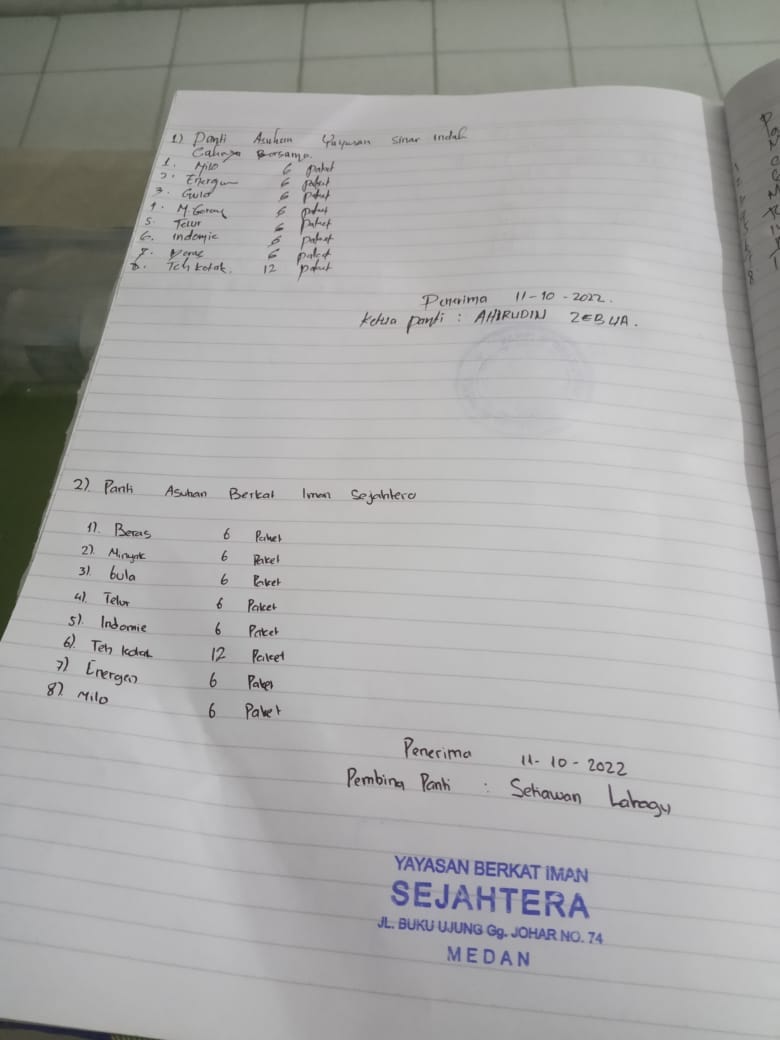 1) Panti Asuhan Yayasan Sinar Indah
Cahaya Bersama.
1. Milo 6 paket
2. Energen 6 paket
3. Gula 6 paket
4. M. Goreng 6 paket
5. Telur 6 paket
6. indomie 6 paket
7. Beras 6 paket
8. Teh kotak. 12 paket
Penerima 11-10-2022.
Ketua panti : AHIRUDIN ZEBUA.
2). Panti Asuhan Berkat Iman Sejahtera
1). Beras 6 Paket
2). Minyak 6 Paket
3). Gula 6 Paket
4). Telur 6 Paket
5). Indomie 6 Paket
6). Teh kotak 12 Paket
7) Energen 6 Paket
8). Milo 6 Paket
Penerima 11-10-2022
Pembina Panti : Setiawan Lahagu
YAYASAN BERKAT IMAN
SEJAHTERA
JL. BUKU UJUNG Gg. JOHAR NO. 74
MEDAN